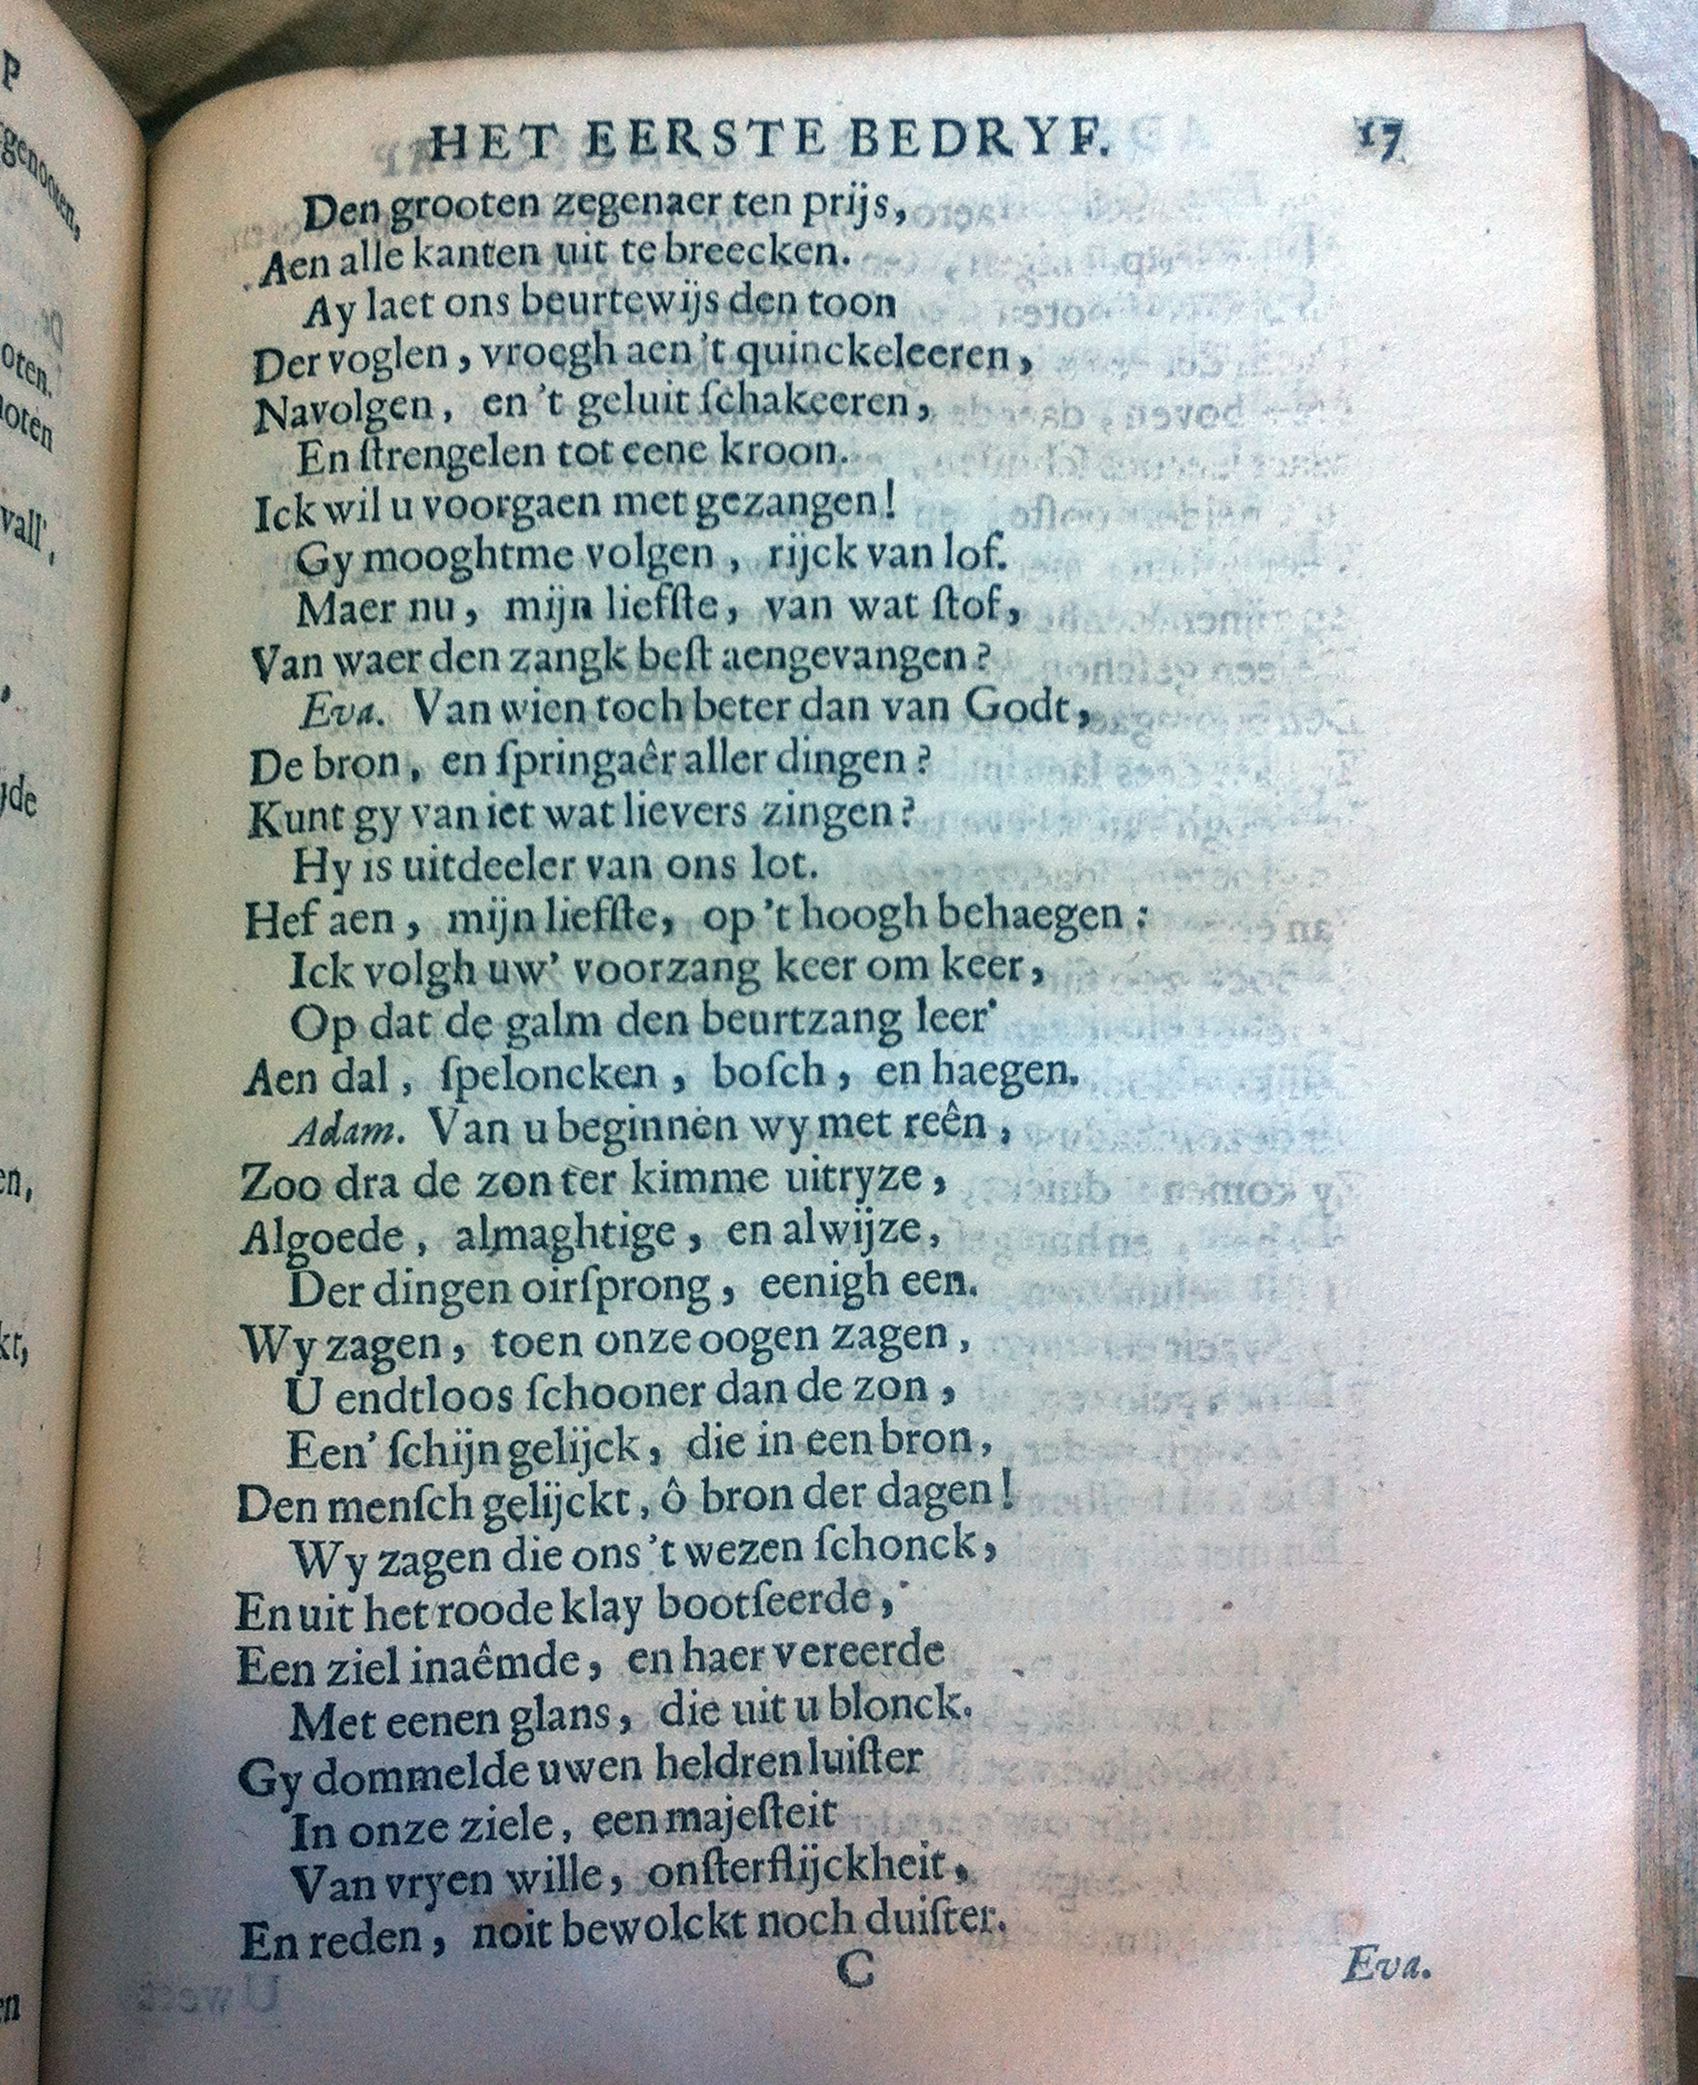 HET EERSTE BEDRYF. 17
Den grooten zegenaer ten prijs,
Aen alle kanten uit te breecken.
Ay laet ons beurtewijs den toon
Der voglen, vroegh aen 't quinckeleeren,
Navolgen, en 't geluit ſchakeeren,
En ſtrengelen tot eene kroon.
Ick wil u voorgaen met gezangen!
Gy mooghtme volgen, rijck van lof.
Maer nu, mijn liefſte, van wat ſtof,
Van waer den zangk beſt aengevangen?
Eva. Van wien toch beter dan van Godt,
De bron, en ſpringaêr aller dingen?
Kunt gy van iet wat lievers zingen?
Hy is uitdeeler van ons lot.
Hef aen, mijn liefſte, op 't hoogh behaegen:
Ick volgh uw' voorzang keer om keer,
Op dat de galm den beurtzang leer'
Aen dal, ſpeloncken, boſch, en haegen.
Adam. Van u beginnen wy met reên,
Zoo dra de zon ter kimme uitryze,
Algoede, almaghtige, en alwijze,
Der dingen oirſprong, eenigh een.
Wy zagen, toen onze oogen zagen,
U endtloos ſchooner dan de zon,
Een' ſchijn gelijck, die in een bron,
Den menſch gelijckt, ô bron der dagen!
Wy zagen die ons 't wezen ſchonck,
En uit het roode klay bootſeerde,
Een ziel inaêmde, en haer vereerde
Met eenen glans, die uit u blonck.
Gy dommelde uwen heldren luiſter
In onze ziele, een majeſteit
Van vryen wille, onſterflijckheit,
En reden, noit bewolckt noch duiſter.
C Eva.